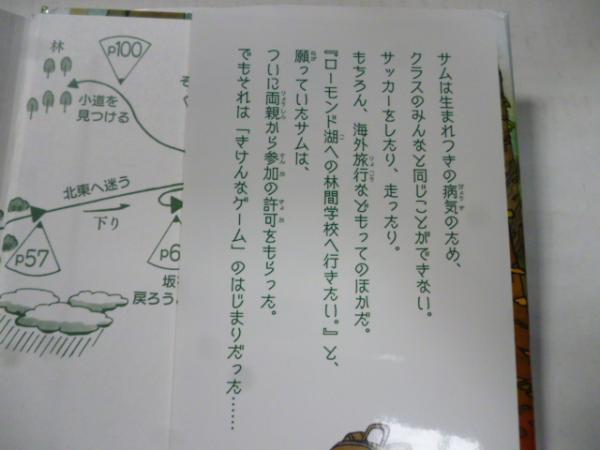 サムは生まれつきの病気のため、
クラスのみんなと同じことができない。
サッカーをしたり、走ったり。
もちろん、海外旅行などもってのほかだ。
『ローモンド湖への林間学校へ行きたい。』と、
願っていたサムは、
ついに両親から参加の許可をもらった。
でもそれは「きけんなゲーム」のはじまりだった……
林
p100
小道を
見つける
北東へ迷う
下り
p57
戻ろう